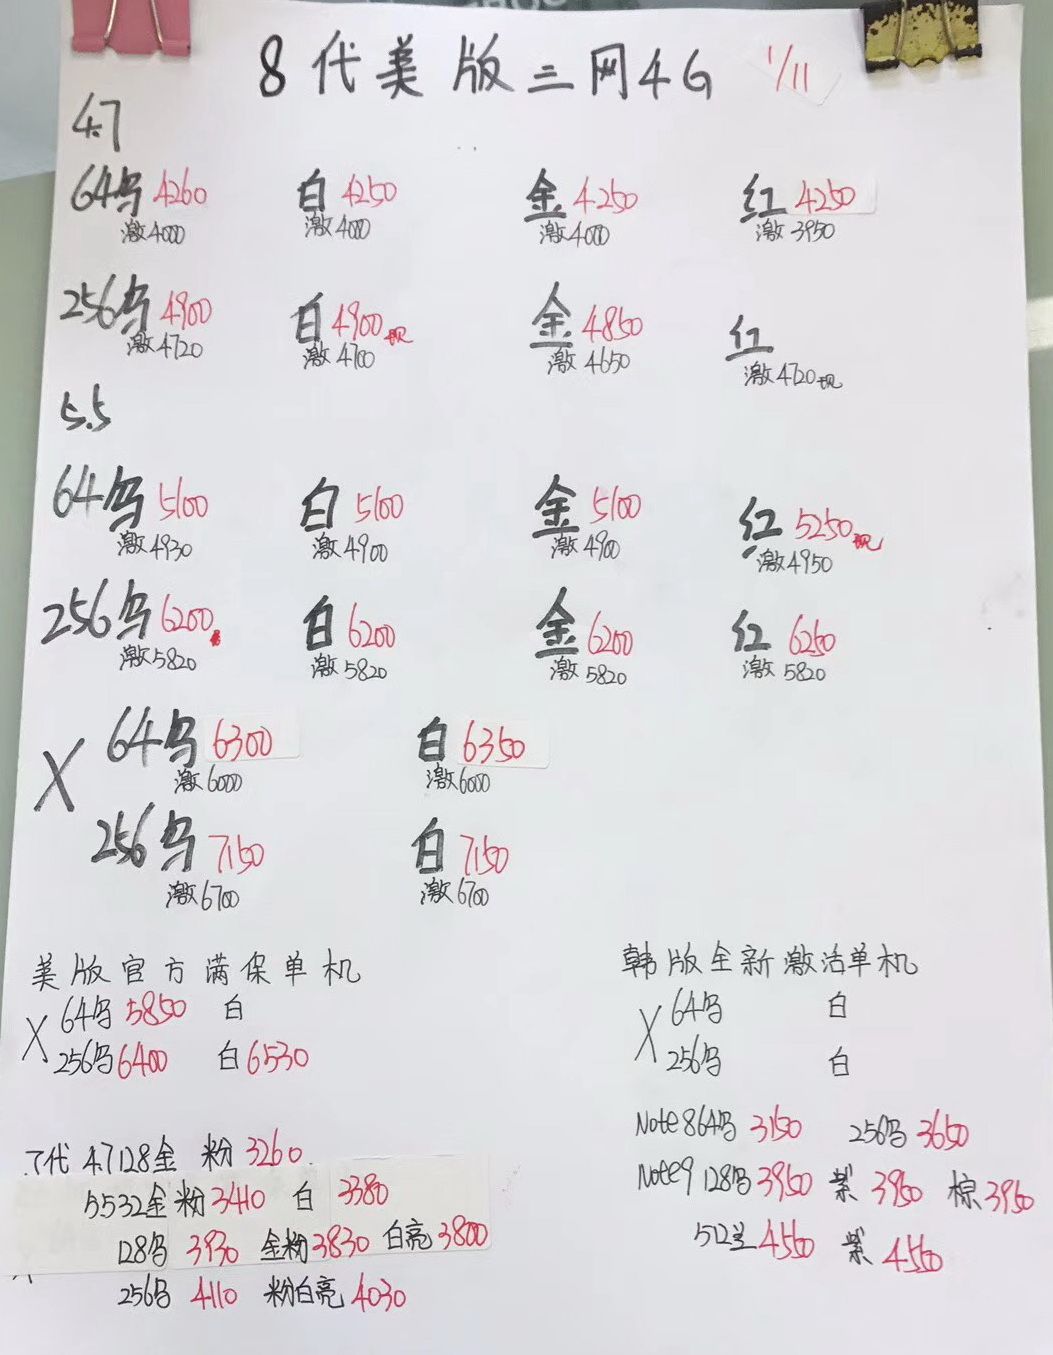 8代美版三网4G 1/11
4.7
64乌 4260 白 4250 金 4250 红 4250
激4000 激4000 激4000 激3950
256乌 4900 白 4900现 金 4850 红
激4720 激4700 激4650 激4720现
5.5
64乌 5100 白 5100 金 5100 红 5250现
激4930 激4900 激4900 激4950
256乌 6200 白 6200 金 6200 红 6250
激5820 激5820 激5820 激5820
X 64乌 6300 白 6350
激6000 激6000
256乌 7150 白 7150
激6700 激6700
美版官方满保单机
X 64乌 5850 白
256乌 6400 白 6530
韩版全新激活单机
X 64乌 白
256乌 白
Note8 64乌 3150 256乌 3650
Note9 128乌 3950 紫 3950 棕 3950
512兰 4500 紫 4500
7代 4.7 128金 粉 3260
5.5 32金粉 3410 白 3380
128乌 3930 金粉 3830 白亮 3800
256乌 4110 粉白亮 4030